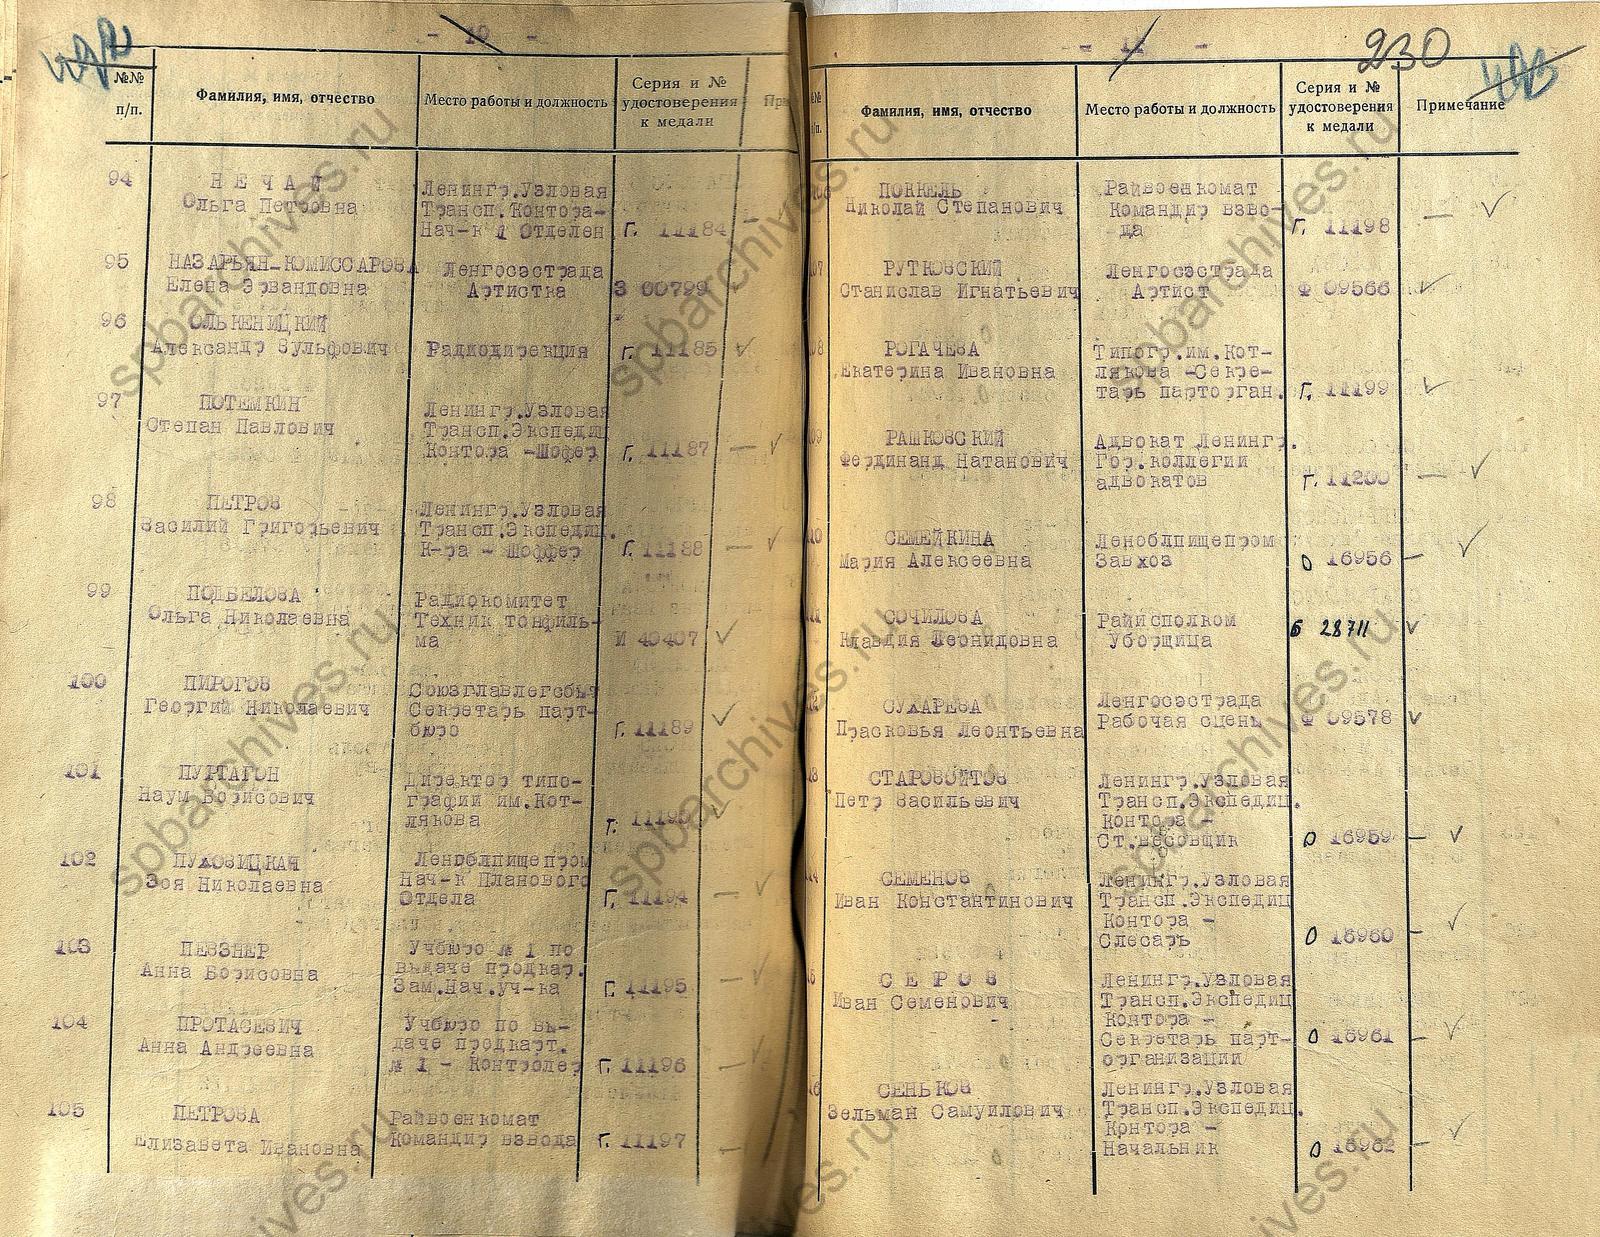 - 10 -
№№
п/п.
Фамилия, имя, отчество
Место работы и должность
Серия и №
удостоверения
к медали
94
НЕЧАЙ
Ольга Петровна
Ленингр.Узловая
Трансп.Контора-
Нач-к 1 Отделен
Г. 11184
95
НАЗАРЬЯН-КОМИССАРОВА
Елена Эрвандовна
Ленгосэстрада
Артистка
З 00799
96
ОЛЬКЕНИЦКИЙ
Александр Вульфович
Радиодирекция
Г. 11185
97
ПОТЕМКИН
Степан Павлович
Ленингр.Узловая
Трансп.Экспедиц
Контора -Шофер
Г. 11187
98
ПЕТРОВ
Василий Григорьевич
Ленингр.Узловая
Трансп.Экспедиц.
К-ра - Шоффер
Г. 11188
99
ПОДБЕЛОВА
Ольга Николаевна
Радиокомитет
Техник тонфиль-
ма
И 40407
100
ПИРОГОВ
Георгий Николаевич
Союзглавлегсбыт
Секретарь парт-
бюро
Г. 11189
101
ПУРТАГОН
Наум Борисович
Директор типо-
графии им.Кот-
лякова
Г. 11193
102
ПУХОВИЦКАЯ
Зоя Николаевна
Леноблпищепром
Нач-к Планового
Отдела
Г. 11194
103
ПЕВЗНЕР
Анна Борисовна
Учбюро № 1 по
выдаче продкар.
Зам.Нач.уч-ка
Г. 11195
104
ПРОТАСЕВИЧ
Анна Андреевна
Учбюро по вы-
даче продкарт.
№ 1 - Контролер
Г. 11196
105
ПЕТРОВА
Елизавета Ивановна
Райвоенкомат
Командир взвода
Г. 11197
- 11 -
230
Фамилия, имя, отчество
Место работы и должность
Серия и №
удостоверения
к медали
Примечание
Николай Степанович
Райвоенкомат
Командир взво-
да
Г. 11198
РУТКОВСКИЙ
Станислав Игнатьевич
Ленгосэстрада
Артист
Ф 09566
РОГАЧЕВА
Екатерина Ивановна
Типогр.им.Кот-
лякова -Секре-
тарь парторган.
Г. 11199
РАШКОВСКИЙ
Фердинанд Натанович
Адвокат Ленингр.
Гор.коллегии
адвокатов
Г. 11200
СЕМЕЙКИНА
Мария Алексеевна
Леноблпищепром
Завхоз
О 16956
СОЧИЛОВА
Клавдия Леонидовна
Райисполком
Уборщица
Б 28711
СУХАРЕВА
Прасковья Леонтьевна
Ленгосэстрада
Рабочая сцены
Ф 09578
СТАРОВОЙТОВ
Петр Васильевич
Ленингр.Узловая
Трансп.Экспедиц.
Контора -
Ст.весовщик
О 16959
СЕМЕНОВ
Иван Константинович
Ленингр.Узловая
Трансп.Экспедиц
Контора -
Слесарь
О 16960
СЕРОВ
Иван Семенович
Ленингр.Узловая
Трансп.Экспедиц
Контора -
Секретарь парт-
организации
О 16961
СЕНЬКОВ
Зельман Самуилович
Ленингр.Узловая
Трансп.Экспедиц.
Контора -
Начальник
О 16962
spbarchives.ru